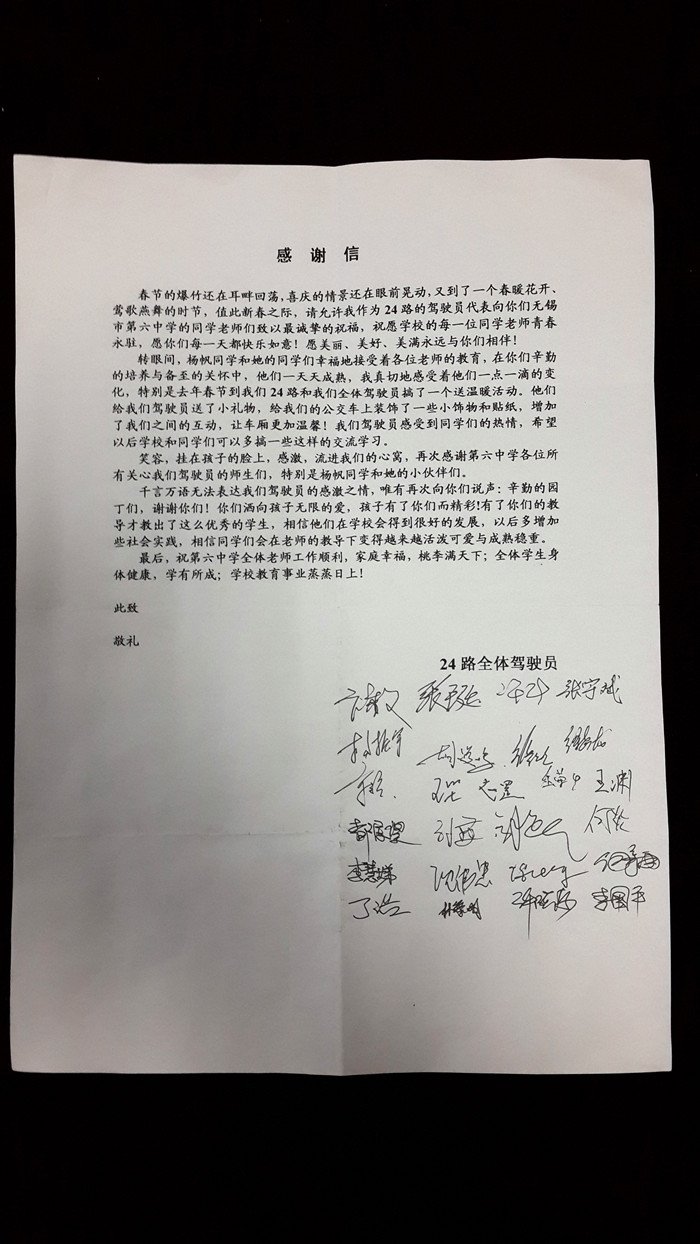 感 谢 信
春节的爆竹还在耳畔回荡,喜庆的情景还在眼前晃动,又到了一个春暖花开、
莺歌燕舞的时节,值此新春之际,请允许我作为 24 路的驾驶员代表向你们无锡
市第六中学的同学老师们致以最诚挚的祝福,祝愿学校的每一位同学老师青春
永驻,愿你们每一天都快乐如意!愿美丽、美好、美满永远与你们相伴!
转眼间,杨帆同学和她的同学们幸福地接受着各位老师的教育,在你们辛勤
的培养与备至的关怀中,他们一天天成熟,我真切地感受着他们一点一滴的变
化,特别是去年春节到我们 24 路和我们全体驾驶员搞了一个送温暖活动。他们
给我们驾驶员送了小礼物,给我们的公交车上装饰了一些小饰物和贴纸,增加
了我们之间的互动,让车厢更加温馨!我们驾驶员感受到同学们的热情,希望
以后学校和同学们可以多搞一些这样的交流学习。
笑容,挂在孩子的脸上,感激,流进我们的心窝,再次感谢第六中学各位所
有关心我们驾驶员的师生们,特别是杨帆同学和她的小伙伴们。
千言万语无法表达我们驾驶员的感激之情,唯有再次向你们说声:辛勤的园
丁们,谢谢你们!你们洒向孩子无限的爱,孩子有了你们而精彩!有了你们的教
导才教出了这么优秀的学生,相信他们在学校会得到很好的发展,以后多增加
些社会实践,相信同学们会在老师的教导下变得越来越活泼可爱与成熟稳重。
最后,祝第六中学全体老师工作顺利,家庭幸福,桃李满天下;全体学生身
体健康,学有所成;学校教育事业蒸蒸日上!
此致
敬礼
24 路全体驾驶员
张宇斌
王渊
李慧娣
丁浩 李国平